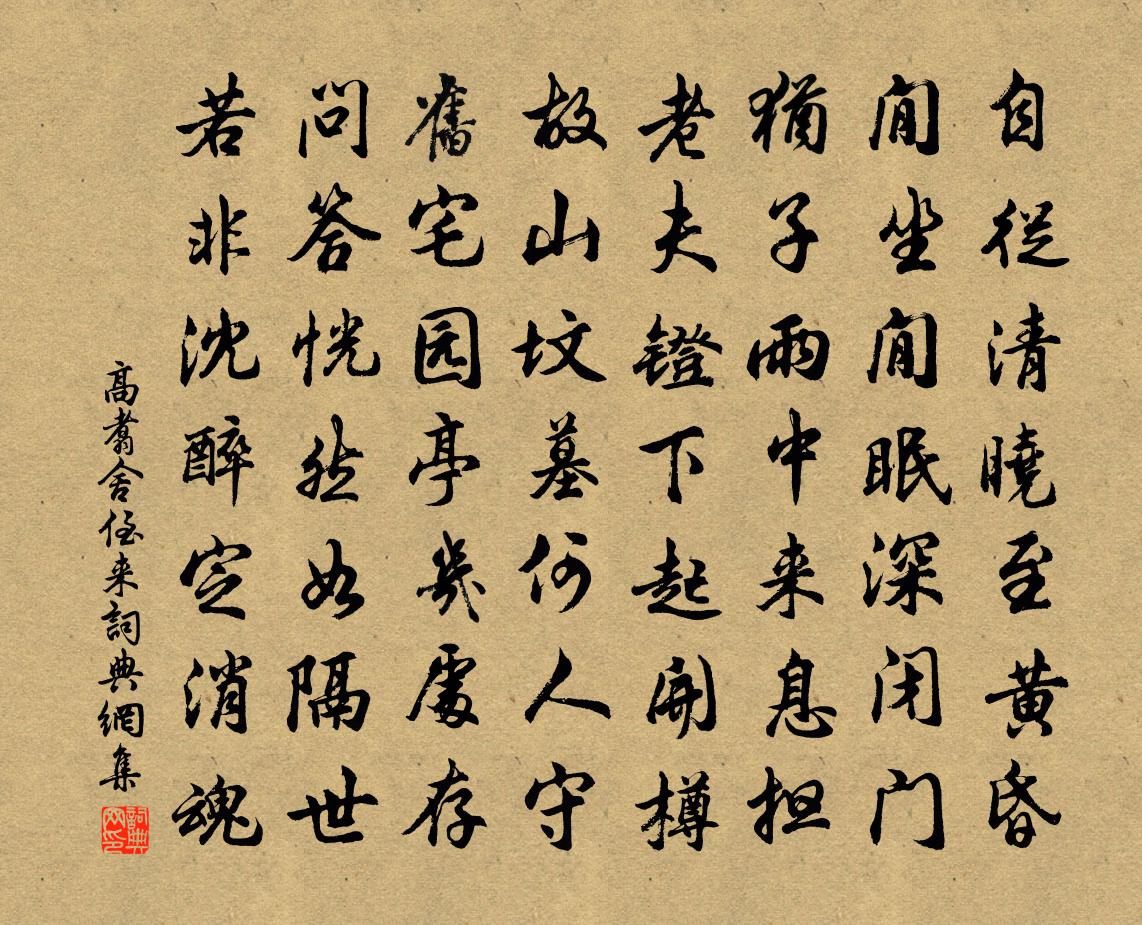 自従清曉至黄昏
閒坐閒眠深闭门
猶子雨中来息担
老夫鐙下起開樽
故山坟墓何人守
舊宅园亭幾處存
问答恍然如隔世
若非沈醉定消魂
高翥舍侄来詞典網集
詞典网印